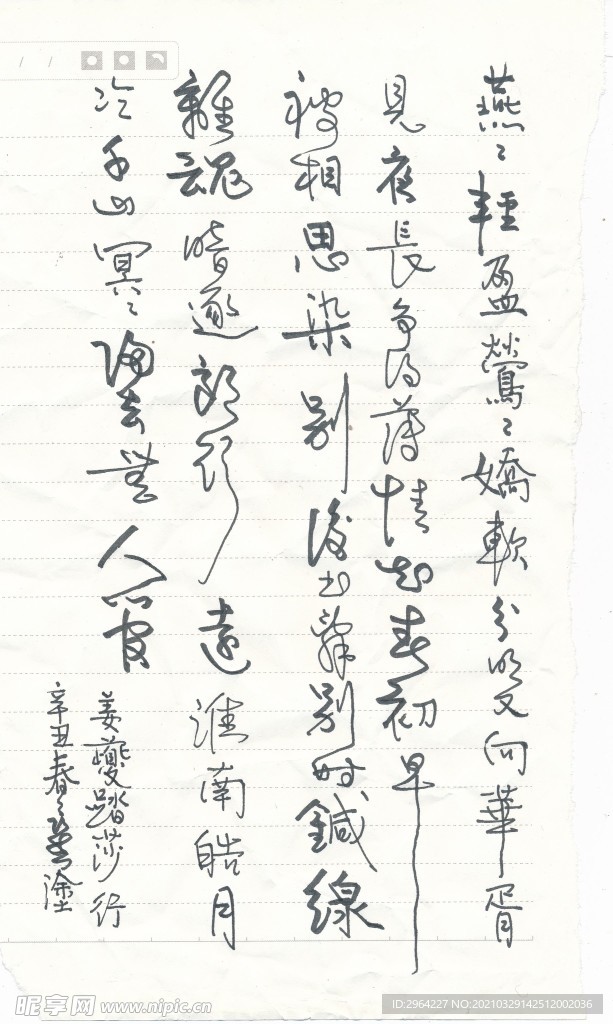 燕〻輕盈鶯〻嬌軟分明又向華胥
見夜長争得薄情知春初早
被相思染別後書辭別時鍼線
離魂暗逐郎行遠淮南皓月
冷千山冥〻歸去無人管
姜夔踏莎行
辛丑春〻塗
昵享网 www.nipic.cn
ID:2964227 NO:20210329142512002036